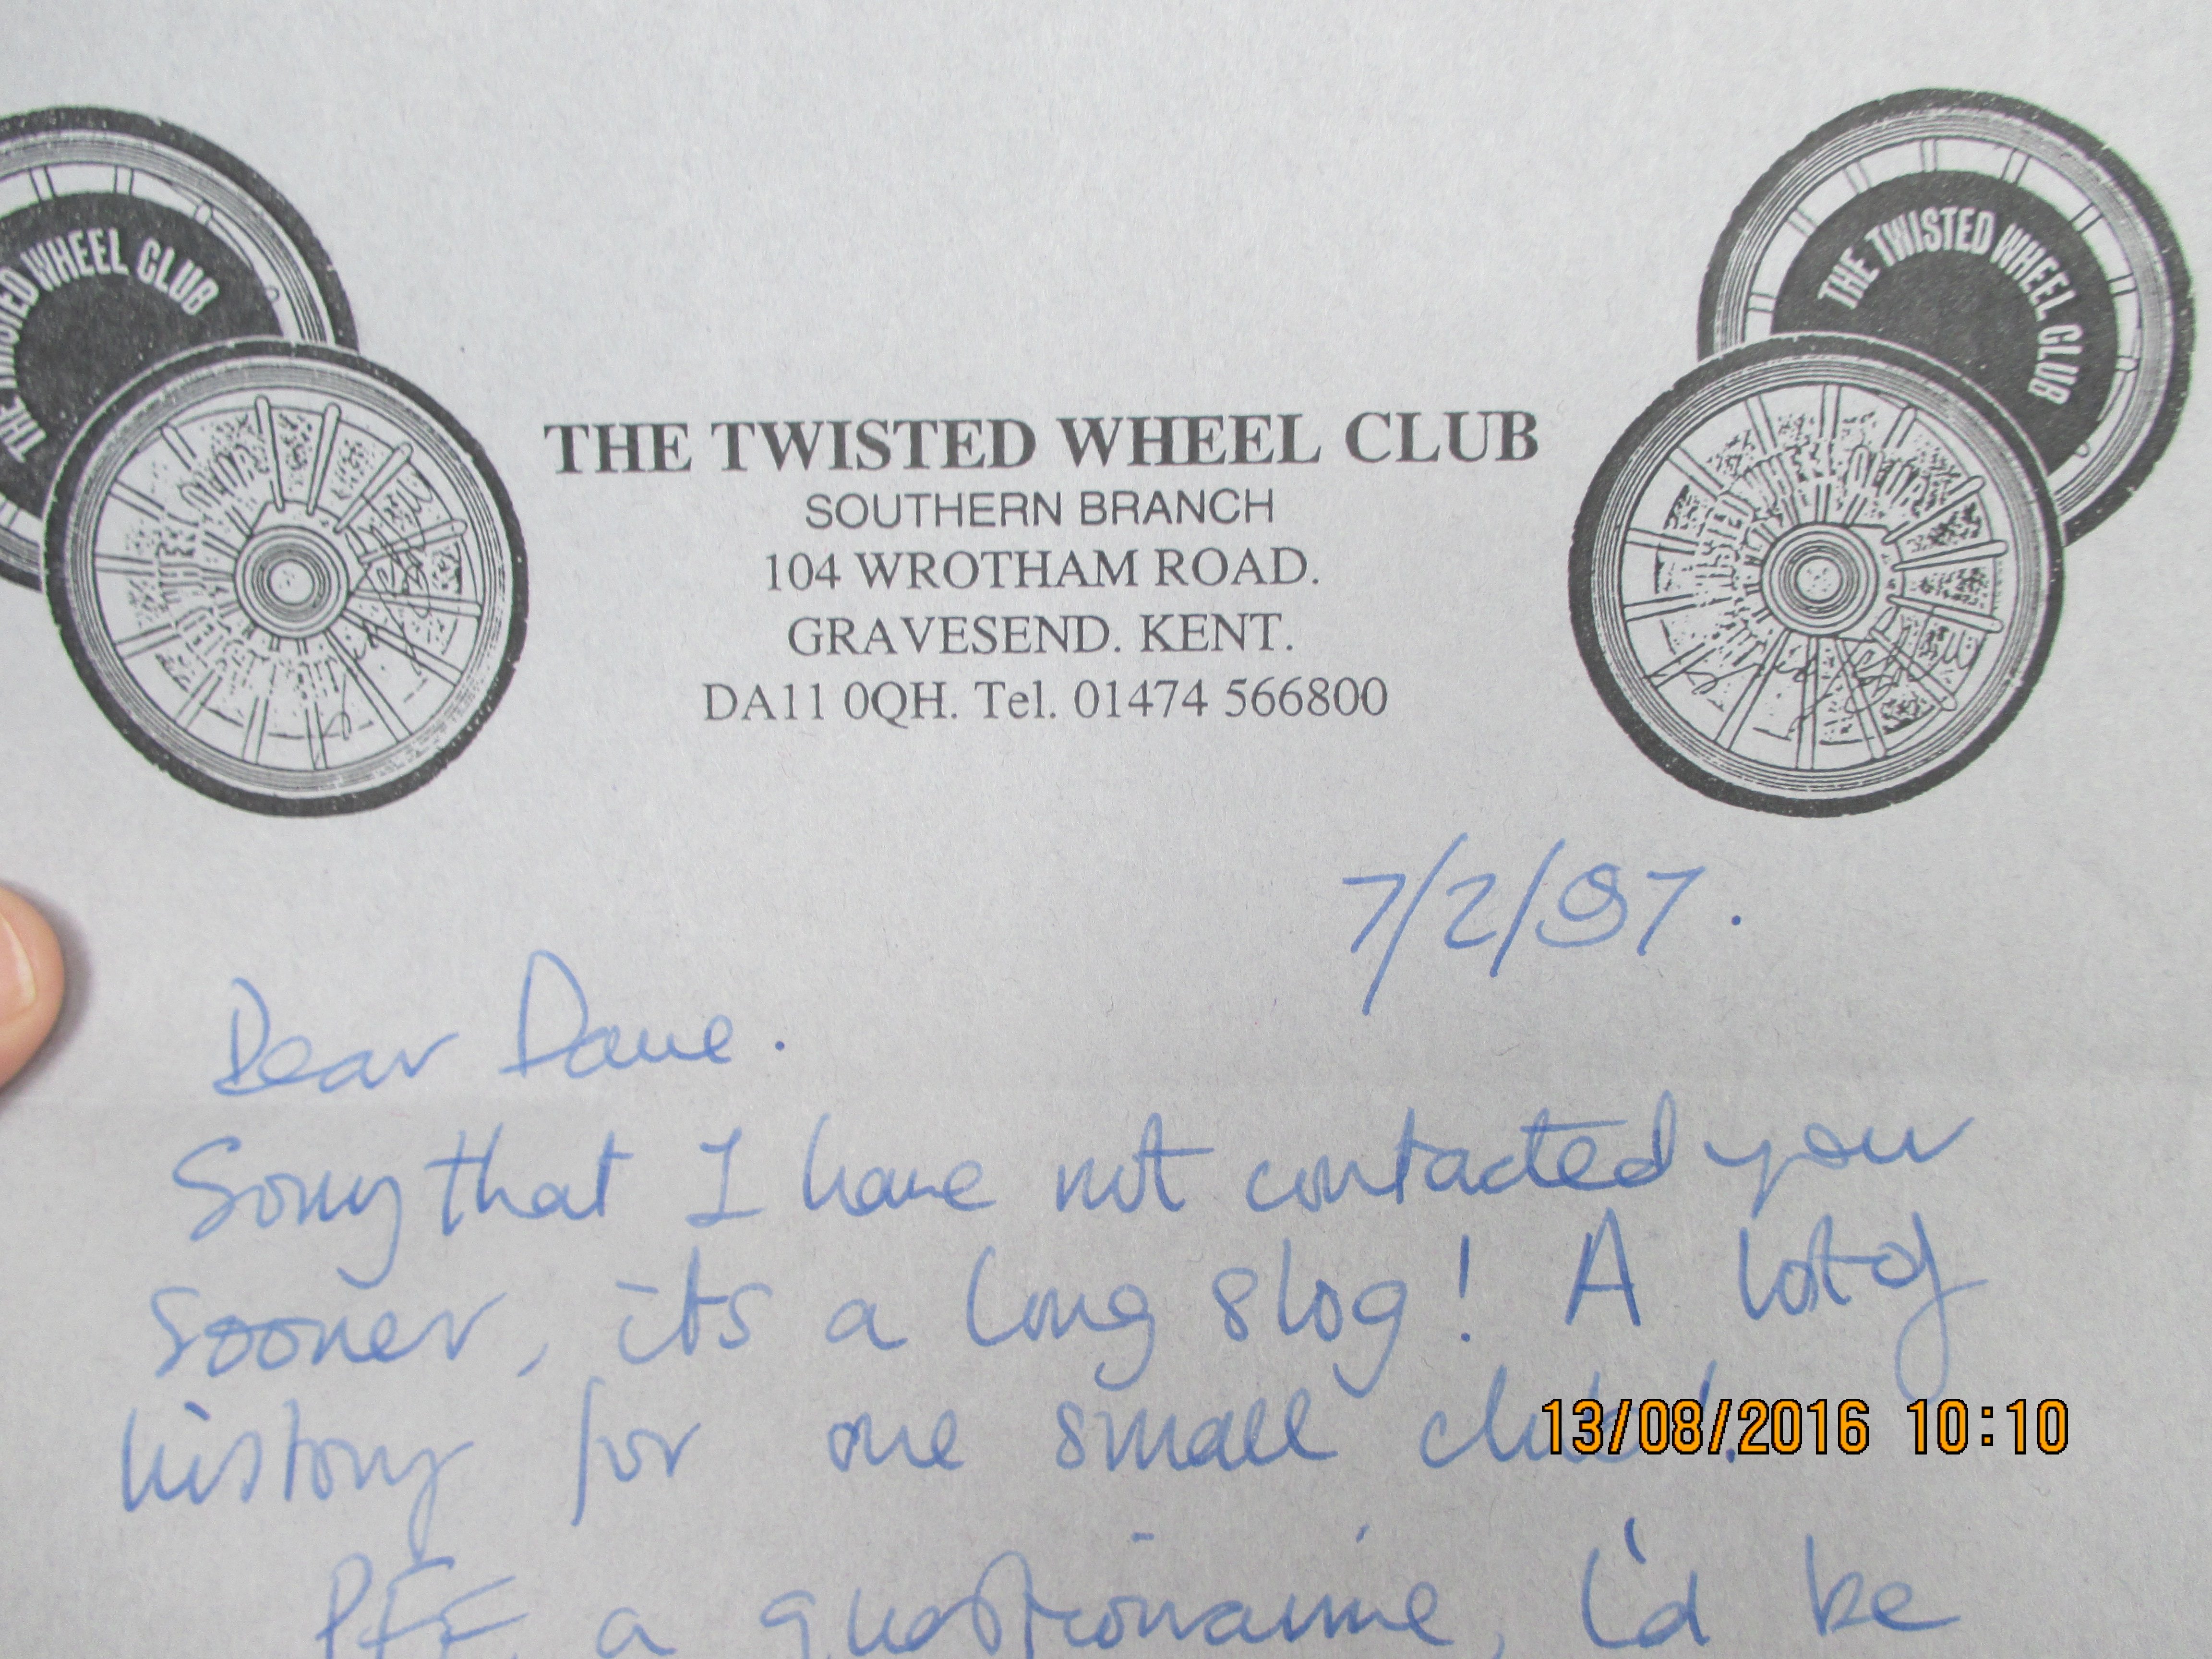 THE TWISTED WHEEL CLUB
THE TWISTED WHEEL CLUB
THE TWISTED WHEEL CLUB
SOUTHERN BRANCH
104 WROTHAM ROAD.
GRAVESEND. KENT.
DA11 0QH. Tel. 01474 566800
7/2/97.
Dear Dave.
Sorry that I have not contacted you
sooner, its a long slog! A lot of
history for one small club!.
13/08/2016 10:10
a questionaire, I'd be